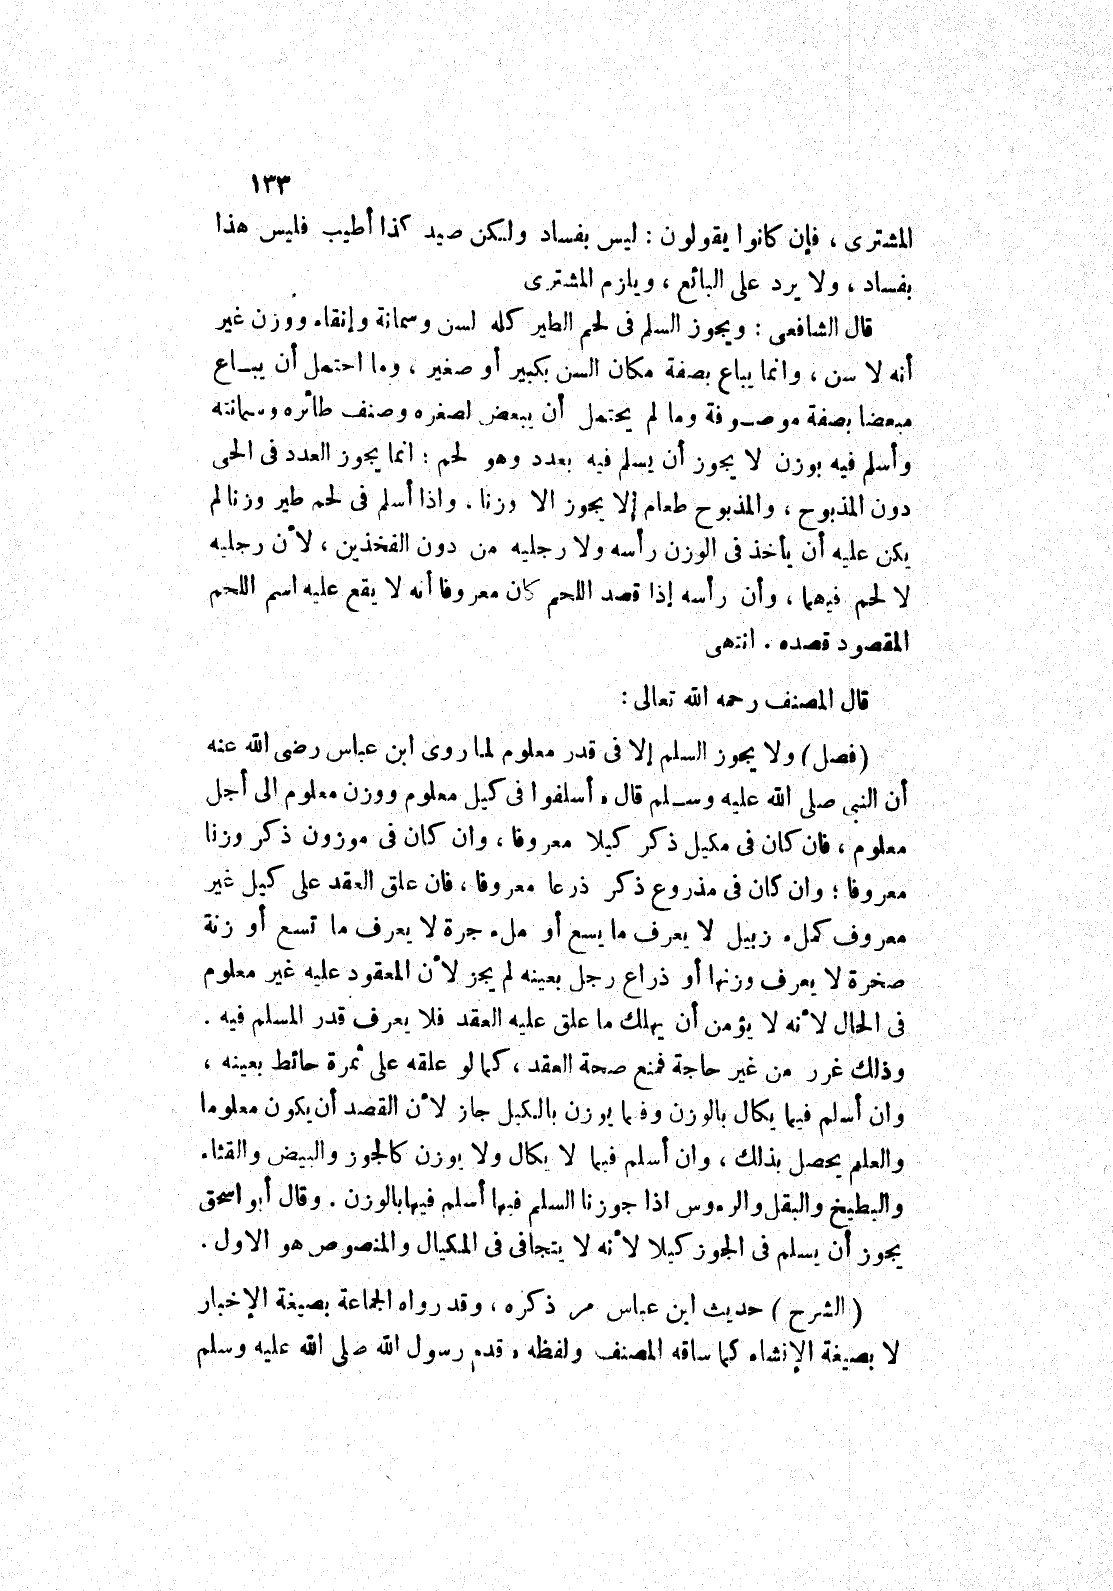 ١٣٣
المشترى ، فإن كانوا يقولون : ليس بفساد ولكن صيد كذا أطيب فليس هذا
بفساد ، ولا يرد على البائع ، ويلزم المشترى
قال الشافعى : ويجوز السلم فى لحم الطير كله لسن وسمانة وإنقاء ووزن غير
أنه لا سن ، وانما يباع بصفة مكان السن بكبير أو صغير ، وما احتمل أن يباع
مبعضا بصفة موصوفة وما لم يحتمل أن يبعض لصغره وصنف طائره وسمانته
وأسلم فيه بوزن لا يجوز أن يسلم فيه بعدد وهو لحم : انما يجوز العدد فى الحى
دون المذبوح ، والمذبوح طعام لا يجوز الا وزنا . واذا أسلم فى لحم طير وزنا لم
يكن عليه أن يأخذ فى الوزن رأسه ولا رجليه من دون الفخذين ، لأن رجليه
لا لحم فيهما ، وأن رأسه إذا قصد اللحم كان معروفا أنه لا يقع عليه اسم اللحم
المقصود قصده . انتهى
قال المصنف رحمه الله تعالى :
( فصل ) ولا يجوز السلم إلا فى قدر معلوم لما روى ابن عباس رضى الله عنه
أن النبى صلى الله عليه وسلم قال « أسلفوا فى كيل معلوم ووزن معلوم الى أجل
معلوم ، فان كان فى مكيل ذكر كيلا معروفا ، وان كان فى موزون ذكر وزنا
معروفا ؛ وان كان فى مذروع ذكر ذرعا معروفا ، فان علق العقد على كيل غير
معروف كملء زبيل لا يعرف ما يسع أو ملء جرة لا يعرف ما تسع أو زنة
صخرة لا يعرف وزنها أو ذراع رجل بعينه لم يجز لأن المعقود عليه غير معلوم
فى الحال لأنه لا يؤمن أن يهلك ما علق عليه العقد فلا يعرف قدر المسلم فيه .
وذلك غرر من غير حاجة فمنع صحة العقد ، كما لو علقه على ثمرة حائط بعينه ،
وان أسلم فيما يكال بالوزن وفيما يوزن بالكيل جاز لأن القصد أن يكون معلوما
والعلم يحصل بذلك ، وان أسلم فيما لا يكال ولا يوزن كالجوز والبيض والقثاء
والبطيخ والبقل والرءوس اذا جوزنا السلم فيها أسلم فيها بالوزن . وقال أبو اسحق
يجوز أن يسلم فى الجوز كيلا لأنه لا يتجافى فى المكيال والمنصوص هو الاول .
( الشرح ) حديث ابن عباس مر ذكره ، وقد رواه الجماعة بصيغة الإخبار
لا بصيغة الإنشاء كما ساقه المصنف ولفظه « قدم رسول الله صلى الله عليه وسلم